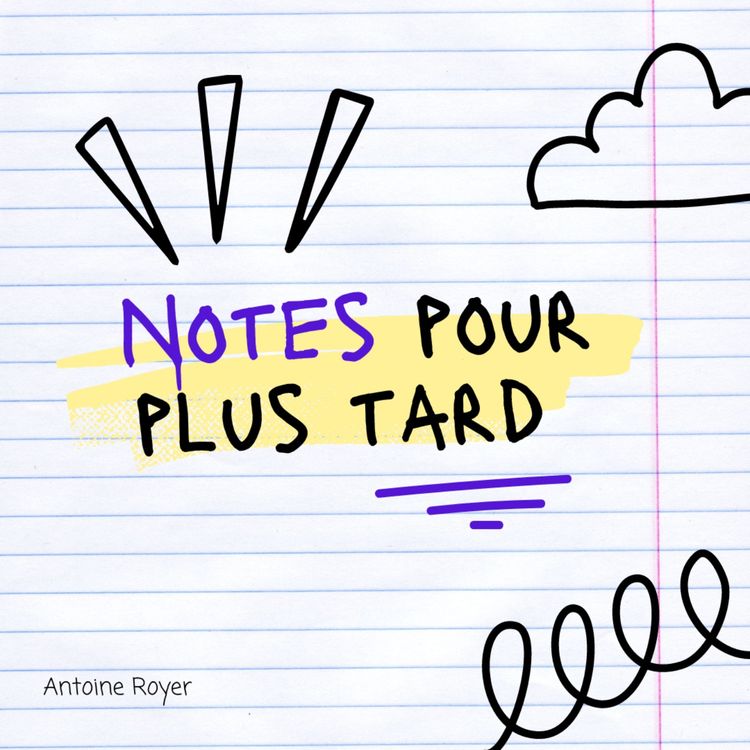 NOTES POUR
PLUS TARD
Antoine Royer